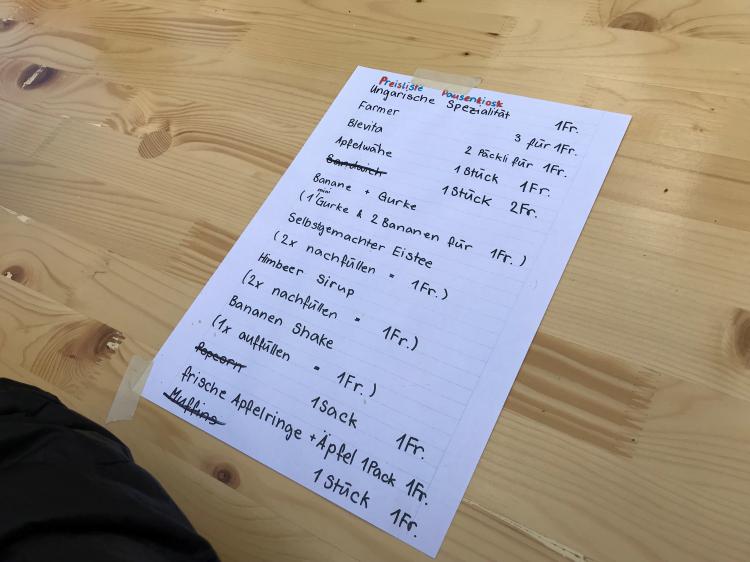 Preisliste Pausenkiosk
Ungarische Spezialität 1Fr.
Farmer 3 für 1Fr.
Blevita 2 Päckli für 1Fr.
Apfelwähe 1 Stück 1Fr.
Sandwich 1 Stück 2Fr.
Banane + Gurke
(1 mini Gurke & 2 Bananen für 1Fr.)
Selbstgemachter Eistee
(2x nachfüllen = 1Fr.)
Himbeer Sirup
(2x nachfüllen = 1Fr.)
Bananen Shake
(1x auffüllen = 1Fr.)
Popcorn 1Sack 1Fr.
frische Apfelringe + Äpfel 1Pack 1Fr.
Muffins 1 Stück 1Fr.